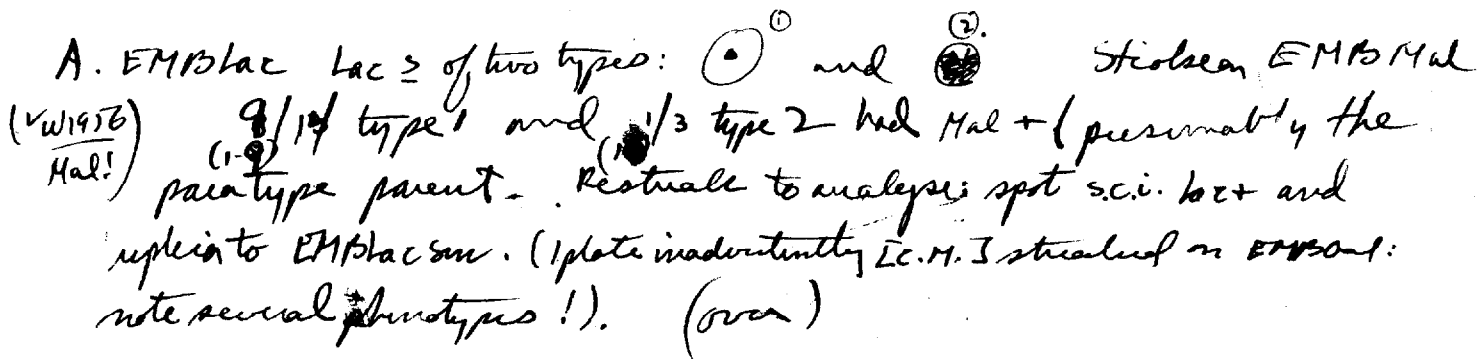 ① ②.
A. EMBLac Lac ≥ of two types: and Streak on EMB Mal
(✓W1956 Mal!) 9/14 type 1 and 1/3 type 2 had Mal + (presumably the
(1-9)
paratype parent. Restreak to analyse: spot s.c.i. Lac+ and
replica to EMBLac Sm. (1 plate inadvertently [C.M.] streaked on EMB
note several phenotypes!). (over)